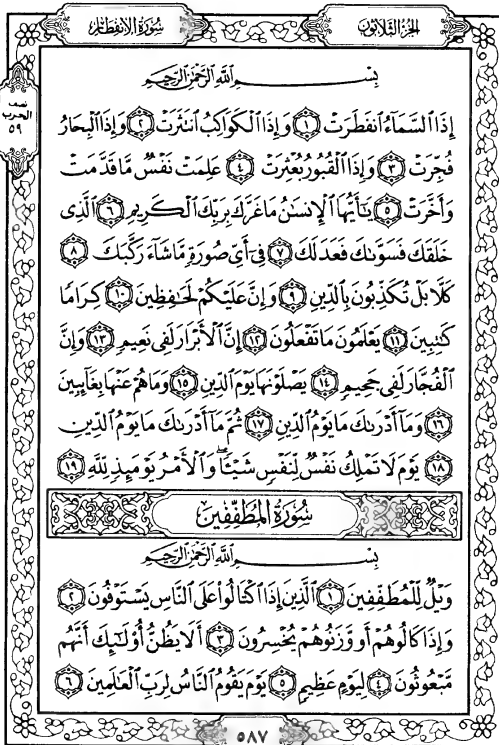 سُورَةُ الانفِطَار
الجُزءُ الثَّلَاثُونَ
نصف
الحزب
٥٩
بِسْمِ اللَّهِ الرَّحْمَٰنِ الرَّحِيمِ
إِذَا ٱلسَّمَآءُ ٱنفَطَرَتْ ١ وَإِذَا ٱلْكَوَاكِبُ ٱنتَثَرَتْ ٢ وَإِذَا ٱلْبِحَارُ
فُجِّرَتْ ٣ وَإِذَا ٱلْقُبُورُ بُعْثِرَتْ ٤ عَلِمَتْ نَفْسٌ مَّا قَدَّمَتْ
وَأَخَّرَتْ ٥ يَٰٓأَيُّهَا ٱلْإِنسَٰنُ مَا غَرَّكَ بِرَبِّكَ ٱلْكَرِيمِ ٦ ٱلَّذِى
خَلَقَكَ فَسَوَّىٰكَ فَعَدَلَكَ ٧ فِىٓ أَىِّ صُورَةٍ مَّا شَآءَ رَكَّبَكَ ٨
كَلَّا بَلْ تُكَذِّبُونَ بِٱلدِّينِ ٩ وَإِنَّ عَلَيْكُمْ لَحَٰفِظِينَ ١٠ كِرَامًا
كَٰتِبِينَ ١١ يَعْلَمُونَ مَا تَفْعَلُونَ ١٢ إِنَّ ٱلْأَبْرَارَ لَفِى نَعِيمٍ ١٣ وَإِنَّ
ٱلْفُجَّارَ لَفِى جَحِيمٍ ١٤ يَصْلَوْنَهَا يَوْمَ ٱلدِّينِ ١٥ وَمَا هُمْ عَنْهَا بِغَآئِبِينَ
١٦ وَمَآ أَدْرَىٰكَ مَا يَوْمُ ٱلدِّينِ ١٧ ثُمَّ مَآ أَدْرَىٰكَ مَا يَوْمُ ٱلدِّينِ
١٨ يَوْمَ لَا تَمْلِكُ نَفْسٌ لِّنَفْسٍ شَيْـًٔا ۖ وَٱلْأَمْرُ يَوْمَئِذٍ لِّلَّهِ ١٩
سُورَةُ المُطَفِّفِينَ
بِسْمِ اللَّهِ الرَّحْمَٰنِ الرَّحِيمِ
وَيْلٌ لِّلْمُطَفِّفِينَ ١ ٱلَّذِينَ إِذَا ٱكْتَالُوا۟ عَلَى ٱلنَّاسِ يَسْتَوْفُونَ ٢
وَإِذَا كَالُوهُمْ أَو وَّزَنُوهُمْ يُخْسِرُونَ ٣ أَلَا يَظُنُّ أُو۟لَٰٓئِكَ أَنَّهُم
مَّبْعُوثُونَ ٤ لِيَوْمٍ عَظِيمٍ ٥ يَوْمَ يَقُومُ ٱلنَّاسُ لِرَبِّ ٱلْعَٰلَمِينَ ٦
٥٨٧